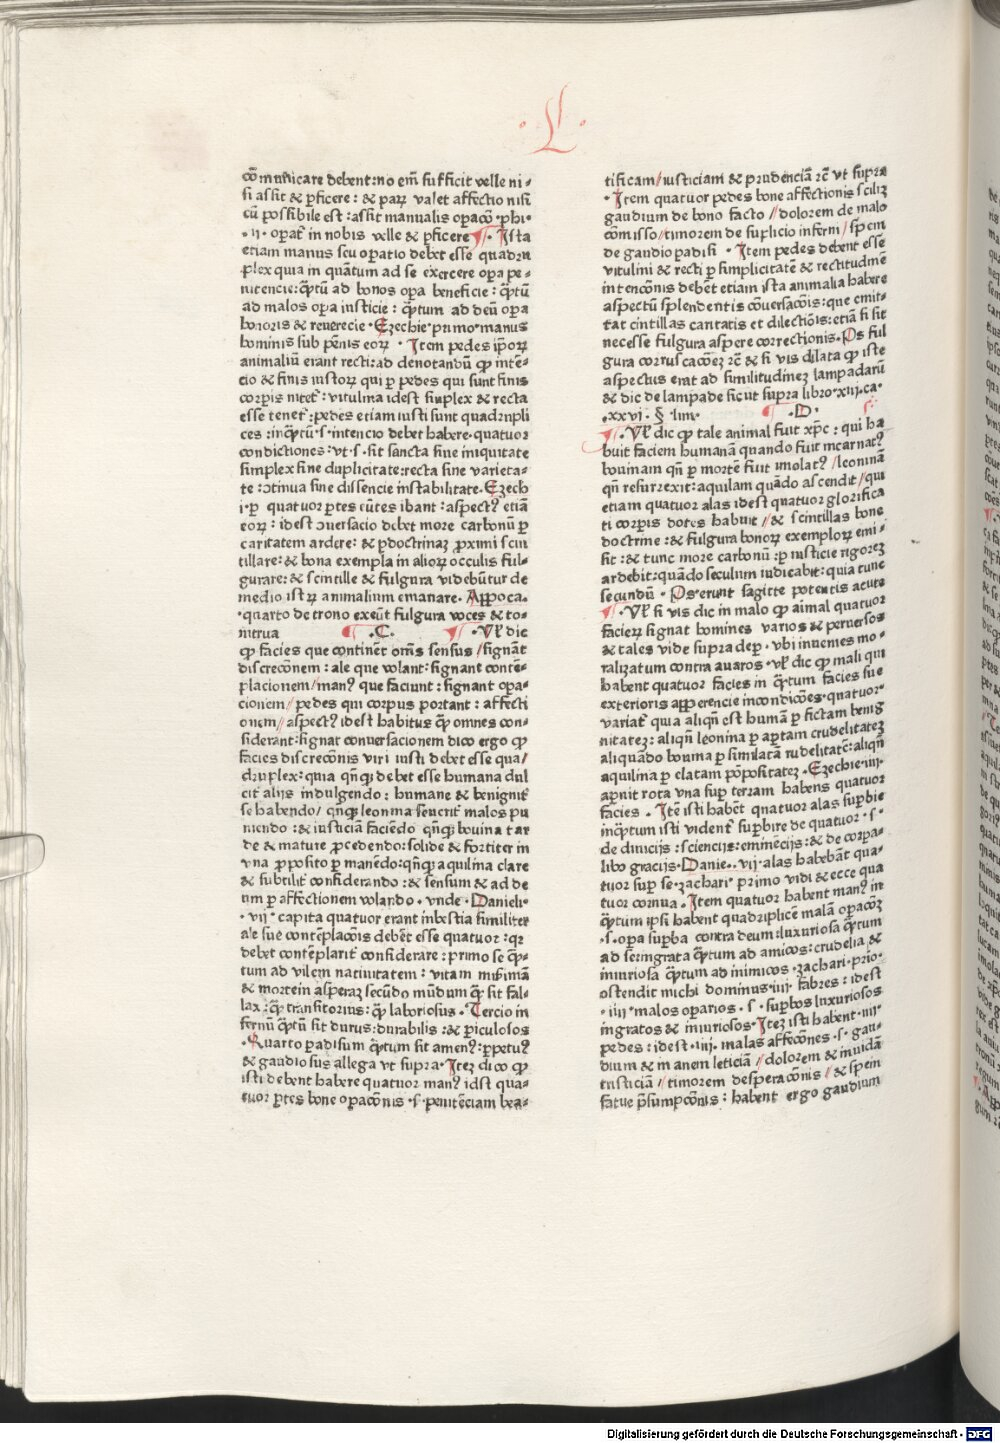 L
cōmunicare debent: no em̄ sufficit velle ni⸗
si assit & ꝑficere : & paꝝ valet affectio nisi
cū possibile est : assit manualis oꝑacō · phi·
· ii · oꝑat̄ in nobis velle & ꝑficere ¶ · Ista
etiam manus seu oꝑatio debet esse quadru
plex quia in quātum ad se exercere oꝑa pe⸗
nitencie: ꝙ̄tū ad bonos oꝑa beneficie : ꝙ̄tū
ad malos oꝑa iusticie : ꝙ̄tum ad deū oꝑa
honoris & reuerēcie · Ezechie · primo · manus
hominis sub pēnis eoꝝ · Item pedes ip̄oꝝ
animaliū erant recti: ad denotandū ꝙ intē⸗
cio & finis iustoꝝ qui ꝑ pedes qui sunt finis
corꝑis nitet̄ : vitulina idest simplex & recta
esse tenet̄ : pedes etiam iusti sunt quadrupli
ces : inꝙ̄tū · s · intencio debet habere · quatuor
condictiones : vt · s · sit sancta sine iniquitate
simplex sine duplicitate: recta sine varieta⸗
te : ↄtinua sine dissencie instabilitate. Ezech
i · ꝑ quatuor ꝑtes eūtes ibant : aspectꝰ etiā
eoꝝ : idest ↄuersacio debet more carbonū ꝑ
caritatem ardere : & ꝑ doctrinaꝫ ꝓximi scin
tillare: & bona exempla in alioꝝ occulis ful⸗
gurare: & scintille & fulgura videbūtur de
medio istꝝ animalium emanare. Appoca.
· quarto de trono exeūt fulgura voces & to⸗
nitrua ¶ · C · ¶ · Vl̄ dic
ꝙ facies que continēt om̄s sensus / signāt
discrecōnem : ale que volant: signant contē⸗
placionem / manꝰ que faciunt : signant oꝑa⸗
cionem // pedes qui corpus portant : affecti
onem // aspectꝰ idest habitus ꝙ omnes con⸗
siderant: signat conuersacionem dico ergo ꝙ
facies discrecōnis viri iusti debet esse qua/
druplex: quia qn̄qꝫ debet esse humana dul
cit̄ alijs indulgendo : humane & benignit̄
se habendo / qn̄qꝫ leonina seuerit̄ malos pu
niendo : & iusticiā faciēdo qn̄qꝫ bouina tar
de & mature ꝓcedendo: solide & fortiter in
vna ꝓposito ꝑmanēdo: qn̄qꝫ aquilina clare
& subtilit̄ considerando : & sensum & ad de
um ꝑ affectionem volando · vnde · Danieli·
· vii · capita quatuor erant inbestia similiter
ale sue contēplacōis debēt esse quatuor : qr
debet contēplarit̄ considerare : primo se ꝙ̄⸗
tum ad vilem natiuitatem : vitam misimā
& mortem asperaꝫ secūdo mūdum ꝙ sit fal⸗
lax : ꝙ transitorius : ꝙ laboriosus · Tercio in
fernū ꝙ̄tū sit durus: durabilis : & ꝑiculosos
· Quarto padisum ꝙ̄tum sit amenꝰ: ꝑpetuꝰ
& gaudiosus allega vt supra · Iteꝫ dico ꝙ
isti debent habere quatuor manꝰ idst qua⸗
tuor ꝑtes bone oꝑacōnis · s · penitēciam bea⸗
tificam / iusticiam & prudenciā ꝛc̄ vt supra
· Item quatuor pedes bone affectionis sciliꝫ
gaudium de bono facto // dolorem de malo
cōmisso / timorem de suplicio inferni / spem
de gaudio padisi · Item pedes debent esse
vitulini & recti ꝑ simplicitatē & rectitudinē
intencōnis debēt etiam ista animalia habere
aspectū splendentis cōuersacōis : que emit⸗
tat cintillas caritatis et dilectiōis: etiā si sit
necesse fulgura aspere correctionis. Ps ful
gura corruscacōeꝫ ꝛc̄ & si vis dilata ꝙ iste
aspectus erat ad similitudineꝫ lampadarū
& dic de lampade sicut supra libro · xiii · ca ·
· xxvi · § · lini · ¶ · D ·
¶ · Vl̄ dic ꝙ tale animal fuit xp̄c : qui ha
buit faciem humanā quando fuit incarnatꝰ
bouinam qn̄ ꝑ mortē fuit imolatꝰ / leoninā
qn̄ resurrexit : aquilam quādo ascendit / qui
etiam quatuor alas idest quatuor glorifica
ti corꝑis dotes habuit // & scintillas bone
doctrine : & fulgura bonoꝝ exemploꝝ emi⸗
sit : & tunc more carbonū : ꝑ iusticie rigoreꝫ
ardebit: quādo seculum iudicabit: quia tunc
secundū · Ps erunt sagitte potentis acute
¶ · Vl̄ si vis dic in malo ꝙ aīmal quatuor
facieꝝ signat homines varios & peruersos
& tales vide supra deꝑ · vbi inuenies mo⸗
ralizatum contra auaros · vl̄ dic ꝙ mali qui
habent quatuor facies in ꝙ̄tum facies sue
exterioris apꝑencie incondicōes · quatuor·
variat̄ quia aliqn̄ est humā ꝑ fictam benig
nitateꝫ : aliqn̄ leonina ꝑ aꝑtam crudelitateꝫ
aliquādo bouina ꝑ similatā rudelitatē: aliqn̄
aquilina ꝑ elatam pōpositateꝫ · Ezechie · iiii ·
aꝑuit rota vna suꝑ terram habens quatuor
facies · Itē isti habēt quatuor alas suꝑbie
inꝙ̄tum isti vident̄ suꝑbire de quatuor · s ·
de diuicijs : sciencijs: eminēcijs : & de corꝑa⸗
libꝰ gracijs · Danie · vij · alas habebāt qua⸗
tuor suꝑ se · zachari · primo vidi & ecce qua
tuor cornua · Item quatuor habent manꝰ in
ꝙ̄tum ipsi habent quadruplicē malā oꝑacōꝫ
· s · oꝑa suꝑba contra deum : luxuriosa ꝙ̄tum
ad se: ingrata ꝙ̄tum ad amicos : crudelia &
iniuriosa ꝙ̄tum ad inimicos · zachari · prio·
ostendit michi dominus · iiii · fabres : idest
· iiii · malos oꝑarios · s · suꝑbos luxuriosos
ingratos & iniuriosos · Iteꝫ isti habent · iiii ·
pedes : idest · iiii · malas affecōnes · s · gau⸗
dium & inanem leticiā // dolorem & inuidā
tristiciā // timorem desperacōnis / & spem
fatue p̄sumpcōnis : habent ergo gaudium
Digitalisierung gefördert durch die Deutsche Forschungsgemeinschaft - DFG